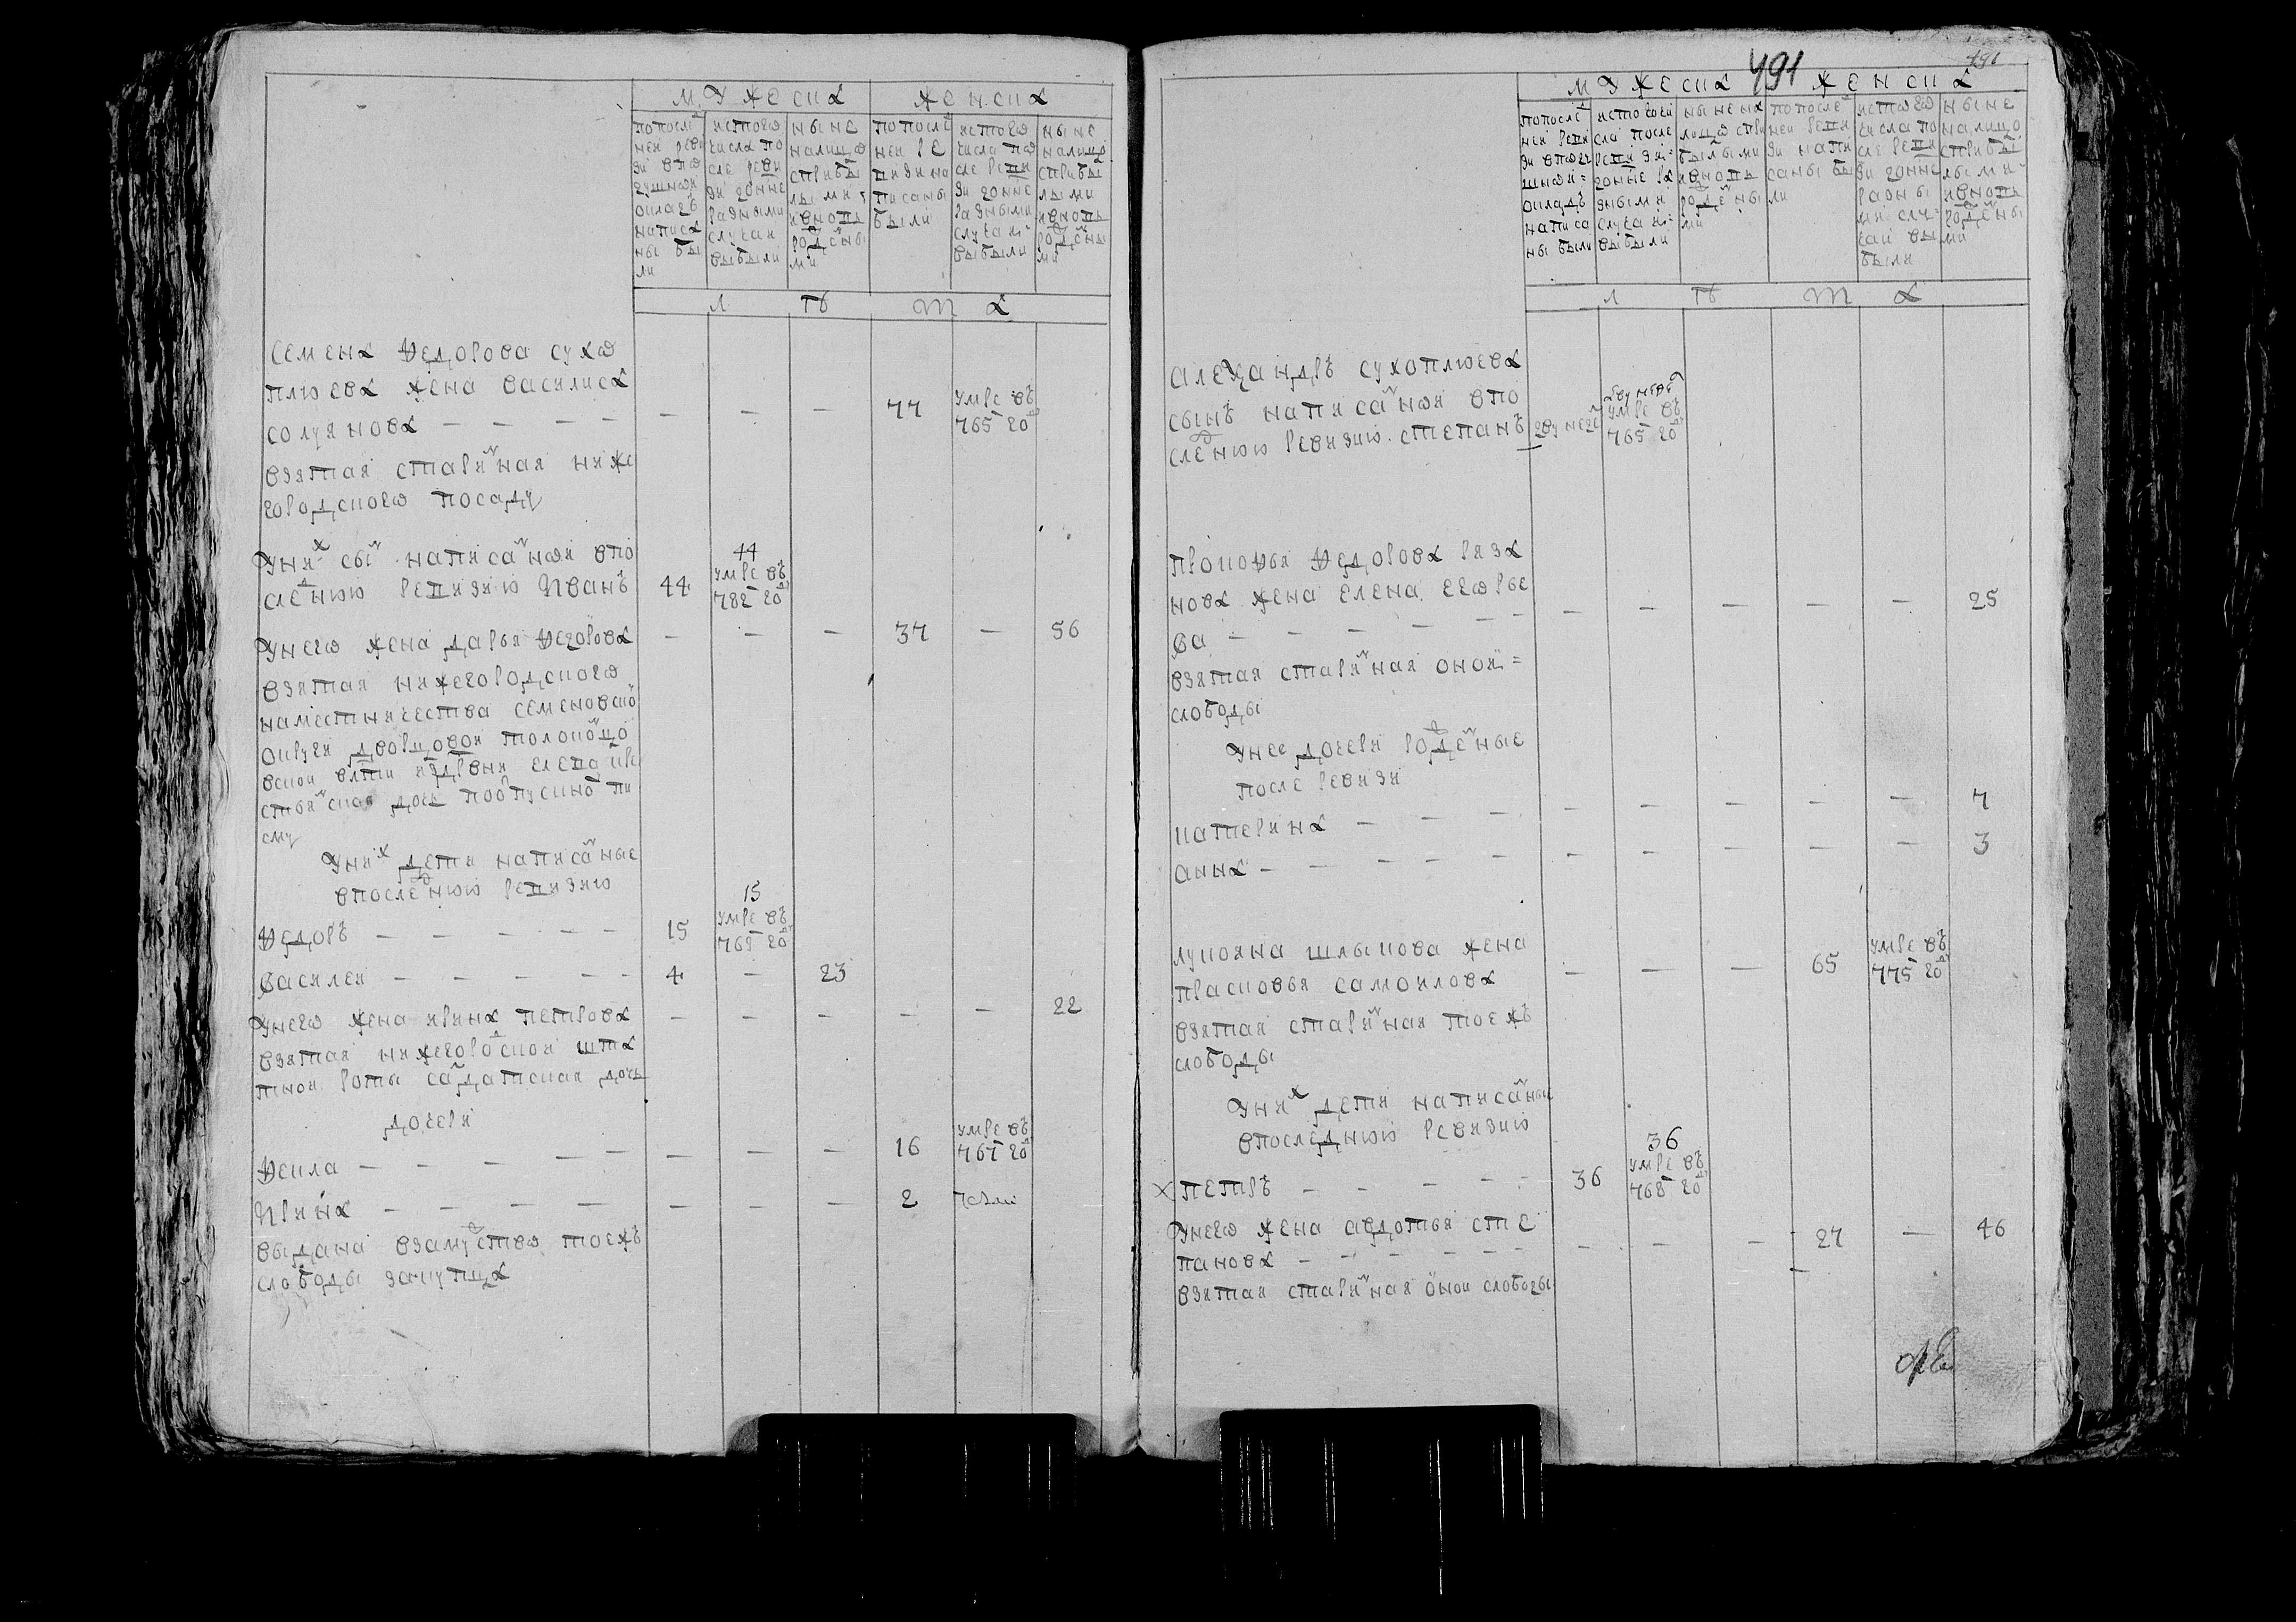 мужеска женска
по после
ней реви
зи в по
душной
оклад
написа
ны бы
ли
ис того
числа по
сле реви
зи донне
разными
случаи
выбыли
ныне
налицо
с прибы
лыми
и вновь
рожденны
ми
по после
ней ре
визи на
писаны
были
ис того
числа по
сле реви
зи донне
разными
случаи
выбыли
ныне
налицо
с прибы
лыми
и вновь
рожденны
ми
л ѣ т а
семена федорова сухо
плюева жена василиса
солуянова — — — — — — — 77 умре въ 765 году
взятая старинная ниже
городского посаду
у них сын написанной в по
следнюю ревизию иванъ 44 44 умре въ 782 году
у него жена дарья федорова — — — 37 — 56
взятая нижегородского
наместничества семеновской
округи дворцовой толоконцо
вской вотчины из деревни
крестьянская дочь по отпускному пи
сму
у них дети написанные
в последнюю ревизию
федоръ — — — — — — 15 15 умре въ 762 году
василей — — — — — — 4 — 23
у него жена ирина петрова — — — — — 22
взятая нижегородской шта
тной роты салдатская дочь
дочери
фекла — — — — — — — — — 16 умре въ 767 году
ирина — — — — — — — — 2
выдана в замужство тоежъ
слободы за купца
491
491
мужеска женска
по после
ней реви
зи в поду
шной
окладъ
написа
ны были
ис того чи
сла после
реви зи
донне ра
зными
случаи
выбыли
ныне на
лицо с при
былыми
и вновь
рожденны
ми
по после
ней реви
зи напи
саны бы
ли
ис того
числа по
сле реви
зи донне
разны
ми слу
чаи вы
были
ныне
налицо
с прибы
лыми
и вновь
рожденны
ми
л ѣ т а
александръ сухоплюева
сынъ написанной в по
следнюю ревизию степанъ дву недель дву недель умре въ 765 году
прокофья федорова ряза
нова жена елена егорье
ва — — — — — — — — — — — 25
взятая старинная оной
слободы
у нее дочери рожденные
после ревизи
катерина — — — — — — — — 7
анна — — — — — — — — — — 3
лукояна шлыкова жена
прасковья самойлова — — — 65 умре въ 775 году
взятая старинная тоежъ
слободы
у них дети написанные
в последнюю ревизию
х петръ — — — — — 36 36 умре въ 768 году
у него жена авдотья сте
панова — — — — — — — — — 27 — 46
взятая старинная оной слободы